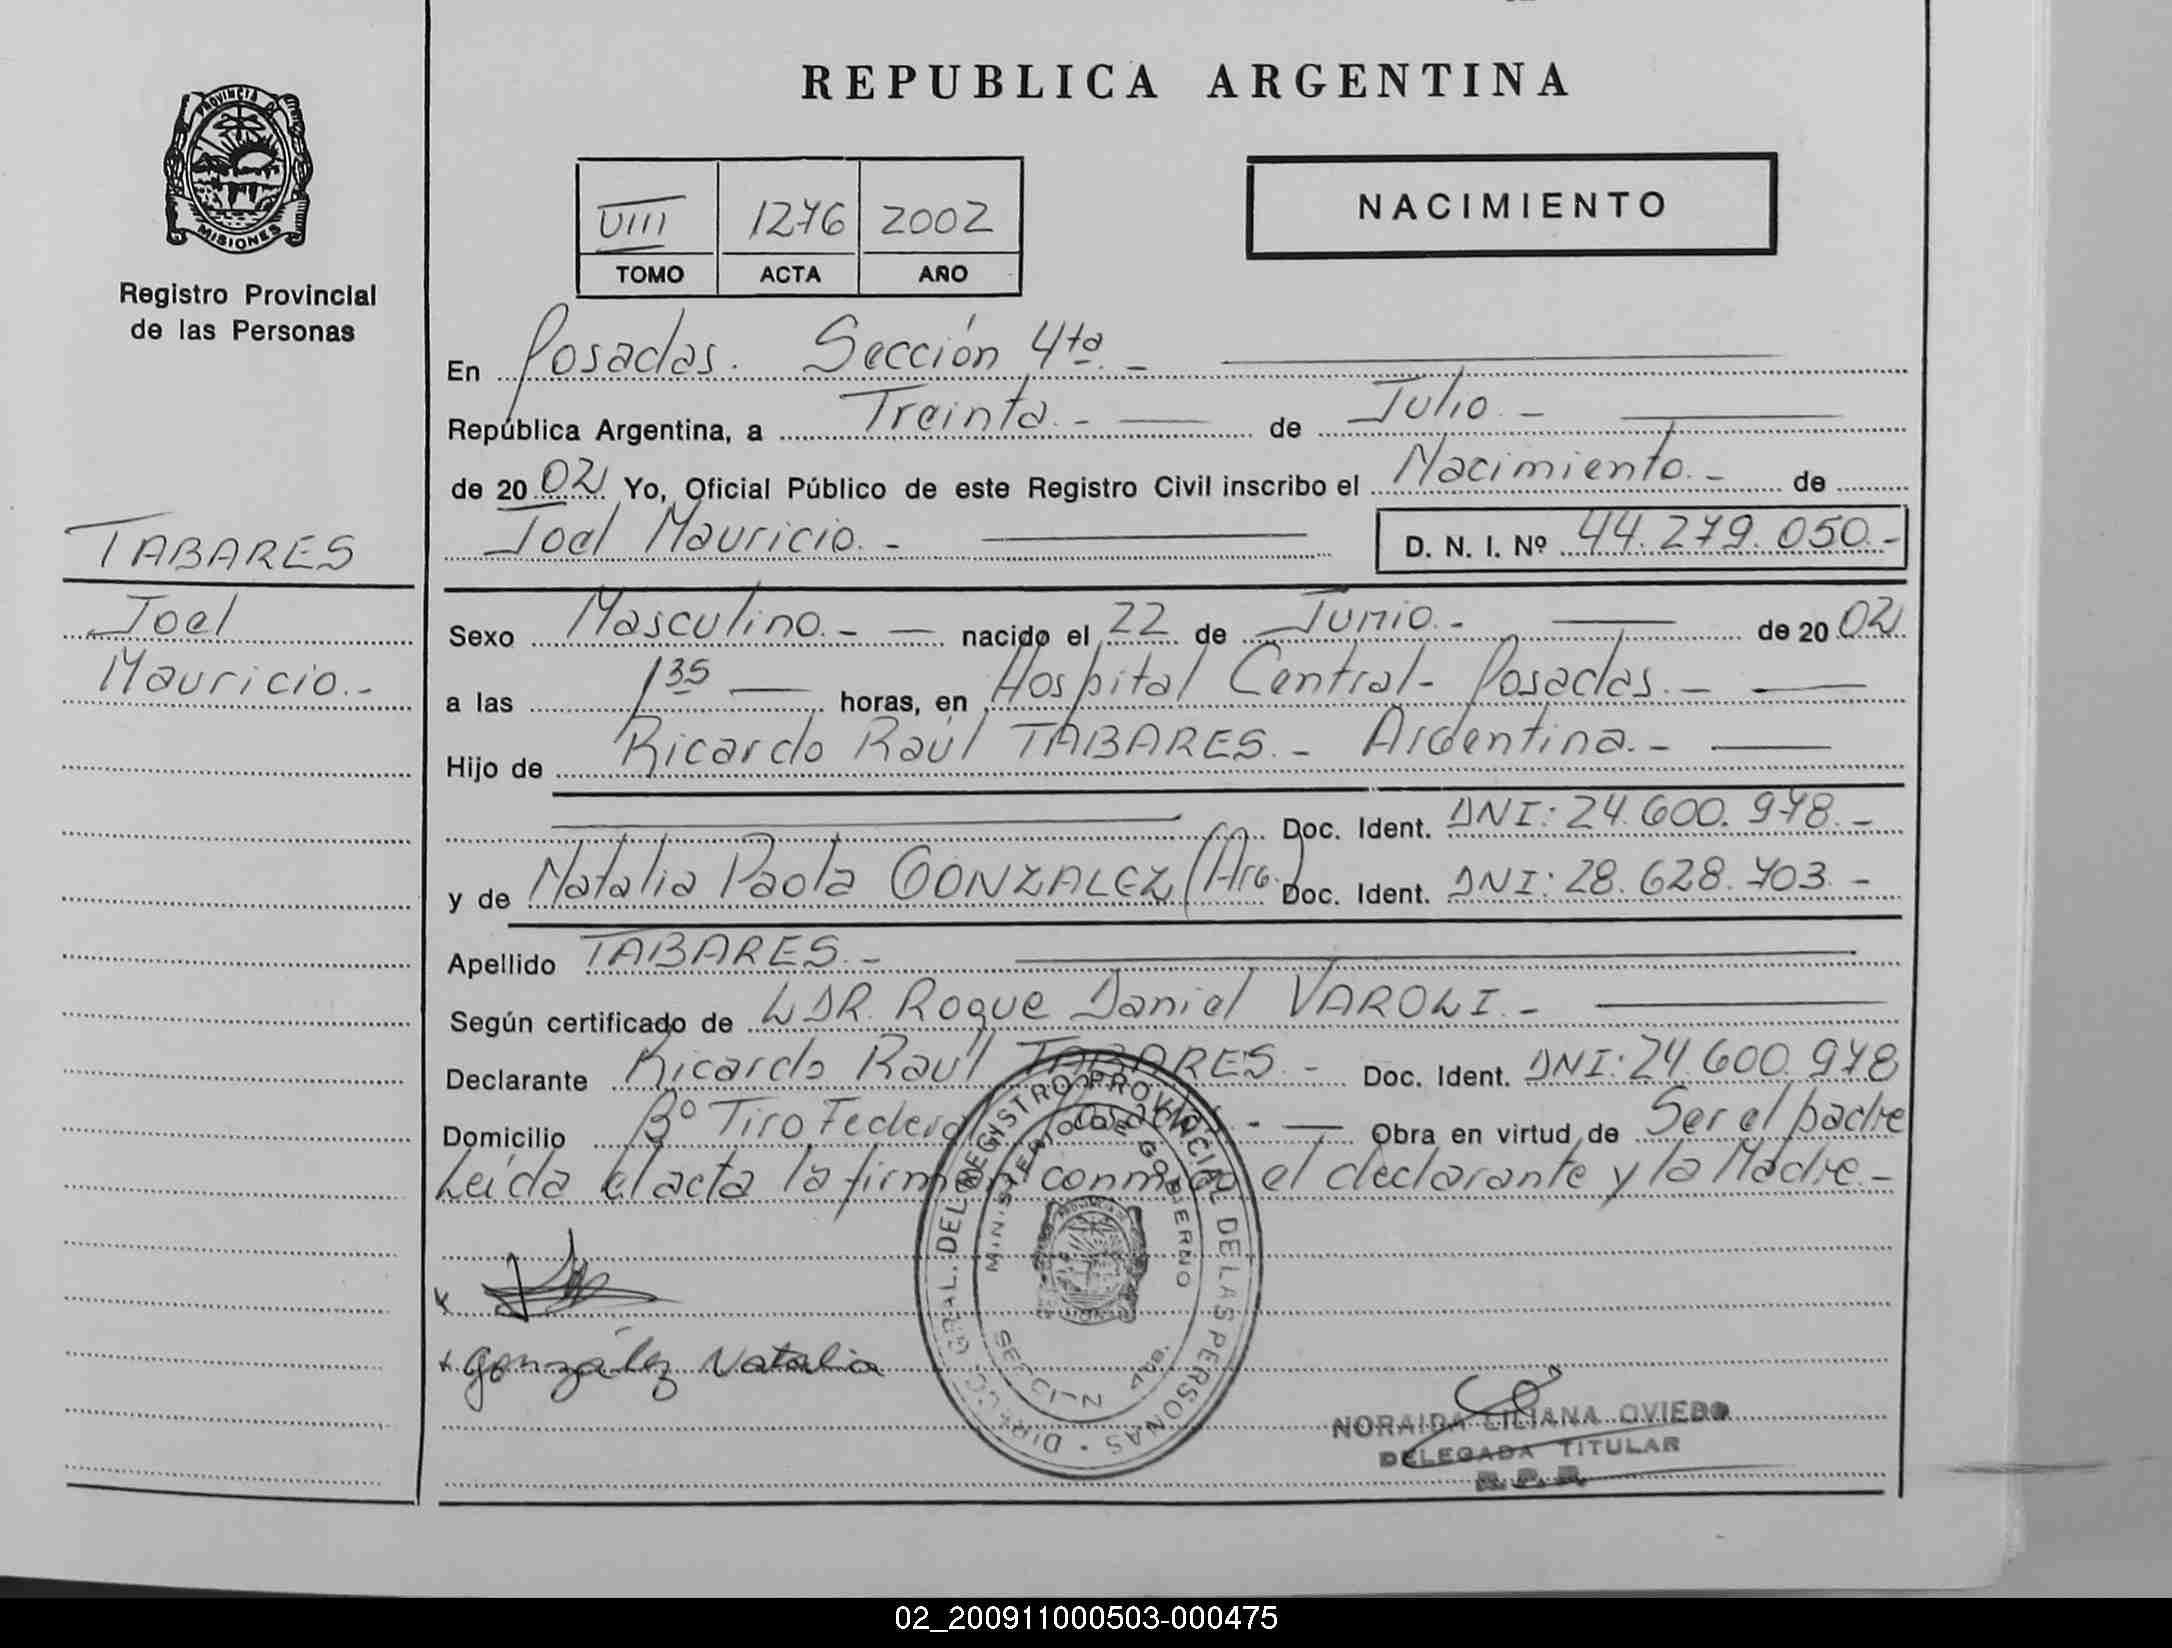 REPUBLICA ARGENTINA
PROVINCIA DE
MISIONES
Registro Provincial
de las Personas
VIII 1276 2002
TOMO ACTA AÑO
NACIMIENTO
En Posadas. Sección 4ta.-
República Argentina, a Treinta.- de Julio.-
de 2002 Yo, Oficial Público de este Registro Civil inscribo el Nacimiento.- de
Joel Mauricio.- D. N. I. Nº 44.279.050.-
TABARES
Joel
Mauricio.-
Sexo Masculino.- nacido el 22 de Junio.- de 2002
a las 1 35 horas, en Hospital Central- Posadas.-
Hijo de Ricardo Raúl TABARES.- Argentina.-
Doc. Ident. DNI: 24.600.978.-
y de Natalia Paola GONZALEZ (Arg.) Doc. Ident. DNI: 28.628.703.-
Apellido TABARES.-
Según certificado de DR. Roque Daniel VAROLI.-
Declarante Ricardo Raúl TABARES.- Doc. Ident. DNI: 24.600.978
Domicilio Bº Tiro Federal Posadas.- Obra en virtud de Ser el padre
Leída el acta la firman conmigo el declarante y la Madre.-
DIRECC. GRAL. DEL REGISTRO PROVINCIAL DE LAS PERSONAS
MINISTERIO DE GOBIERNO
x
x González Natalia
NORAIDA LILIANA OVIEDO
DELEGADA TITULAR
02_200911000503-000475